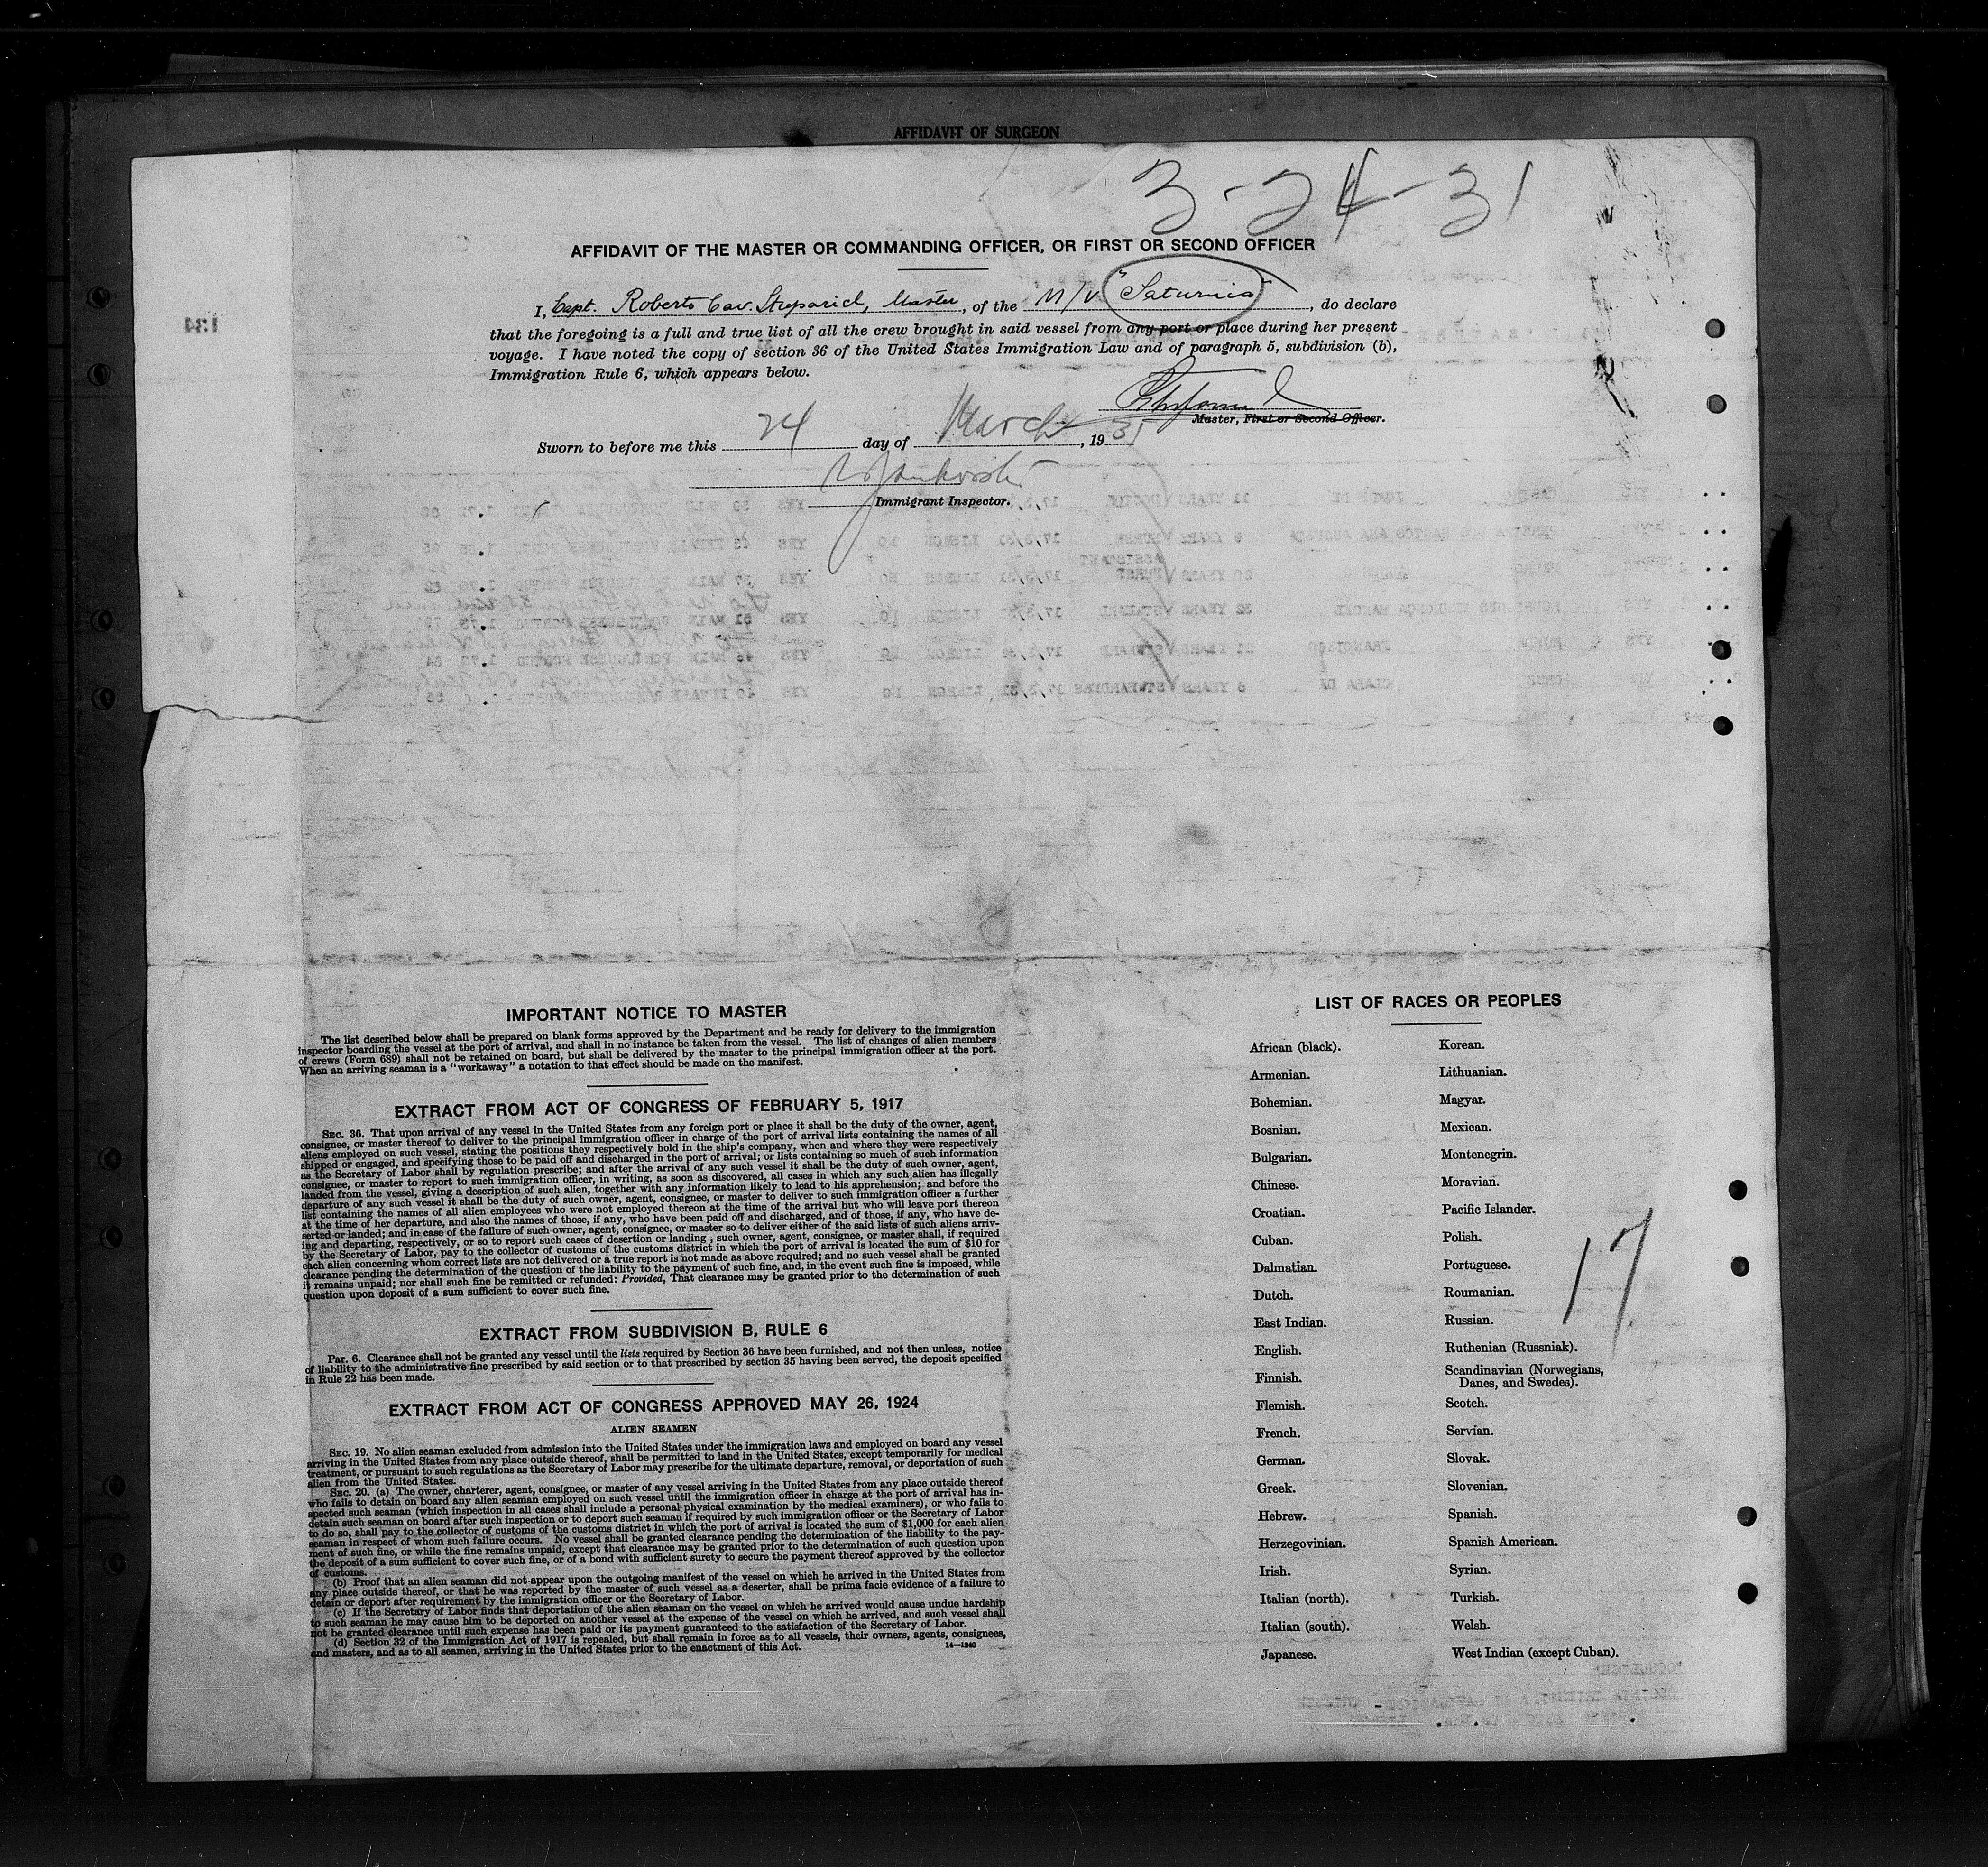 AFFIDAVIT OF SURGEON
3-24-31
AFFIDAVIT OF THE MASTER OR COMMANDING OFFICER, OR FIRST OR SECOND OFFICER
I, Capt. Roberto Cav. Stuparich, Master, of the M/V "Saturnia", do declare
that the foregoing is a full and true list of all the crew brought in said vessel from any port or place during her present
voyage. I have noted the copy of section 36 of the United States Immigration Law and of paragraph 5, subdivision (b),
Immigration Rule 6, which appears below.
Master, First or Second Officer.
Sworn to before me this 24 day of March, 1931
Immigrant Inspector.
IMPORTANT NOTICE TO MASTER
The list described below shall be prepared on blank forms approved by the Department and be ready for delivery to the immigration
inspector boarding the vessel at the port of arrival, and shall in no instance be taken from the vessel. The list of changes of alien members
of crews (Form 689) shall not be retained on board, but shall be delivered by the master to the principal immigration officer at the port.
When an arriving seaman is a "workaway" a notation to that effect should be made on the manifest.
EXTRACT FROM ACT OF CONGRESS OF FEBRUARY 5, 1917
SEC. 36. That upon arrival of any vessel in the United States from any foreign port or place it shall be the duty of the owner, agent,
consignee, or master thereof to deliver to the principal immigration officer in charge of the port of arrival lists containing the names of all
aliens employed on such vessel, stating the positions they respectively hold in the ship's company, when and where they were respectively
shipped or engaged, and specifying those to be paid off and discharged in the port of arrival; or lists containing so much of such information
as the Secretary of Labor shall by regulation prescribe; and after the arrival of any such vessel it shall be the duty of such owner, agent,
consignee, or master to report to such immigration officer, in writing, as soon as discovered, all cases in which any such alien has illegally
landed from the vessel, giving a description of such alien, together with any information likely to lead to his apprehension; and before the
departure of any such vessel it shall be the duty of such owner, agent, consignee, or master to deliver to such immigration officer a further
list containing the names of all alien employees who were not employed thereon at the time of the arrival but who will leave port thereon
at the time of her departure, and also the names of those, if any, who have been paid off and discharged, and of those, if any, who have de-
serted or landed; and in case of the failure of such owner, agent, consignee, or master so to deliver either of the said lists of such aliens arriv-
ing and departing, respectively, or so to report such cases of desertion or landing, such owner, agent, consignee, or master shall, if required
by the Secretary of Labor, pay to the collector of customs of the customs district in which the port of arrival is located the sum of $10 for
each alien concerning whom correct lists are not delivered or a true report is not made as above required; and no such vessel shall be granted
clearance pending the determination of the question of the liability to the payment of such fine, and, in the event such fine is imposed, while
it remains unpaid; nor shall such fine be remitted or refunded: Provided, That clearance may be granted prior to the determination of such
question upon deposit of a sum sufficient to cover such fine.
EXTRACT FROM SUBDIVISION B, RULE 6
Par. 6. Clearance shall not be granted any vessel until the lists required by Section 36 have been furnished, and not then unless, notice
of liability to the administrative fine prescribed by said section or to that prescribed by section 35 having been served, the deposit specified
in Rule 22 has been made.
EXTRACT FROM ACT OF CONGRESS APPROVED MAY 26, 1924
ALIEN SEAMEN
SEC. 19. No alien seaman excluded from admission into the United States under the immigration laws and employed on board any vessel
arriving in the United States from any place outside thereof, shall be permitted to land in the United States, except temporarily for medical
treatment, or pursuant to such regulations as the Secretary of Labor may prescribe for the ultimate departure, removal, or deportation of such
alien from the United States.
SEC. 20. (a) The owner, charterer, agent, consignee, or master of any vessel arriving in the United States from any place outside thereof
who fails to detain on board any alien seaman employed on such vessel until the immigration officer in charge at the port of arrival has in-
spected such seaman (which inspection in all cases shall include a personal physical examination by the medical examiners), or who fails to
detain such seaman on board after such inspection or to deport such seaman if required by such immigration officer or the Secretary of Labor
to do so, shall pay to the collector of customs of the customs district in which the port of arrival is located the sum of $1,000 for each alien
seaman in respect of whom such failure occurs. No vessel shall be granted clearance pending the determination of the liability to the pay-
ment of such fine, or while the fine remains unpaid, except that clearance may be granted prior to the determination of such question upon
the deposit of a sum sufficient to cover such fine, or of a bond with sufficient surety to secure the payment thereof approved by the collector
of customs.
(b) Proof that an alien seaman did not appear upon the outgoing manifest of the vessel on which he arrived in the United States from
any place outside thereof, or that he was reported by the master of such vessel as a deserter, shall be prima facie evidence of a failure to
detain or deport after requirement by the immigration officer or the Secretary of Labor.
(c) If the Secretary of Labor finds that deportation of the alien seaman on the vessel on which he arrived would cause undue hardship
to such seaman he may cause him to be deported on another vessel at the expense of the vessel on which he arrived, and such vessel shall
not be granted clearance until such expense has been paid or its payment guaranteed to the satisfaction of the Secretary of Labor.
(d) Section 32 of the Immigration Act of 1917 is repealed, but shall remain in force as to all vessels, their owners, agents, consignees,
and masters, and as to all seamen, arriving in the United States prior to the enactment of this Act.
14—1240
LIST OF RACES OR PEOPLES
African (black).
Armenian.
Bohemian.
Bosnian.
Bulgarian.
Chinese.
Croatian.
Cuban.
Dalmatian.
Dutch.
East Indian.
English.
Finnish.
Flemish.
French.
German.
Greek.
Hebrew.
Herzegovinian.
Irish.
Italian (north).
Italian (south).
Japanese.
Korean.
Lithuanian.
Magyar.
Mexican.
Montenegrin.
Moravian.
Pacific Islander.
Polish.
Portuguese.
Roumanian.
Russian.
Ruthenian (Russniak).
Scandinavian (Norwegians,
Danes, and Swedes).
Scotch.
Servian.
Slovak.
Slovenian.
Spanish.
Spanish American.
Syrian.
Turkish.
Welsh.
West Indian (except Cuban).
17